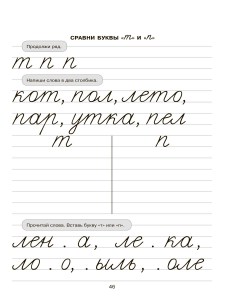 СРАВНИ БУКВЫ «т» И «п»
Продолжи ряд.
т п п
Напиши слова в два столбика.
кот, пол, лето,
пар, утка, пел
т п
Прочитай слова. Вставь букву «т» или «п».
лен . а, ле . ка,
ло . о, . ыль, . оле
49